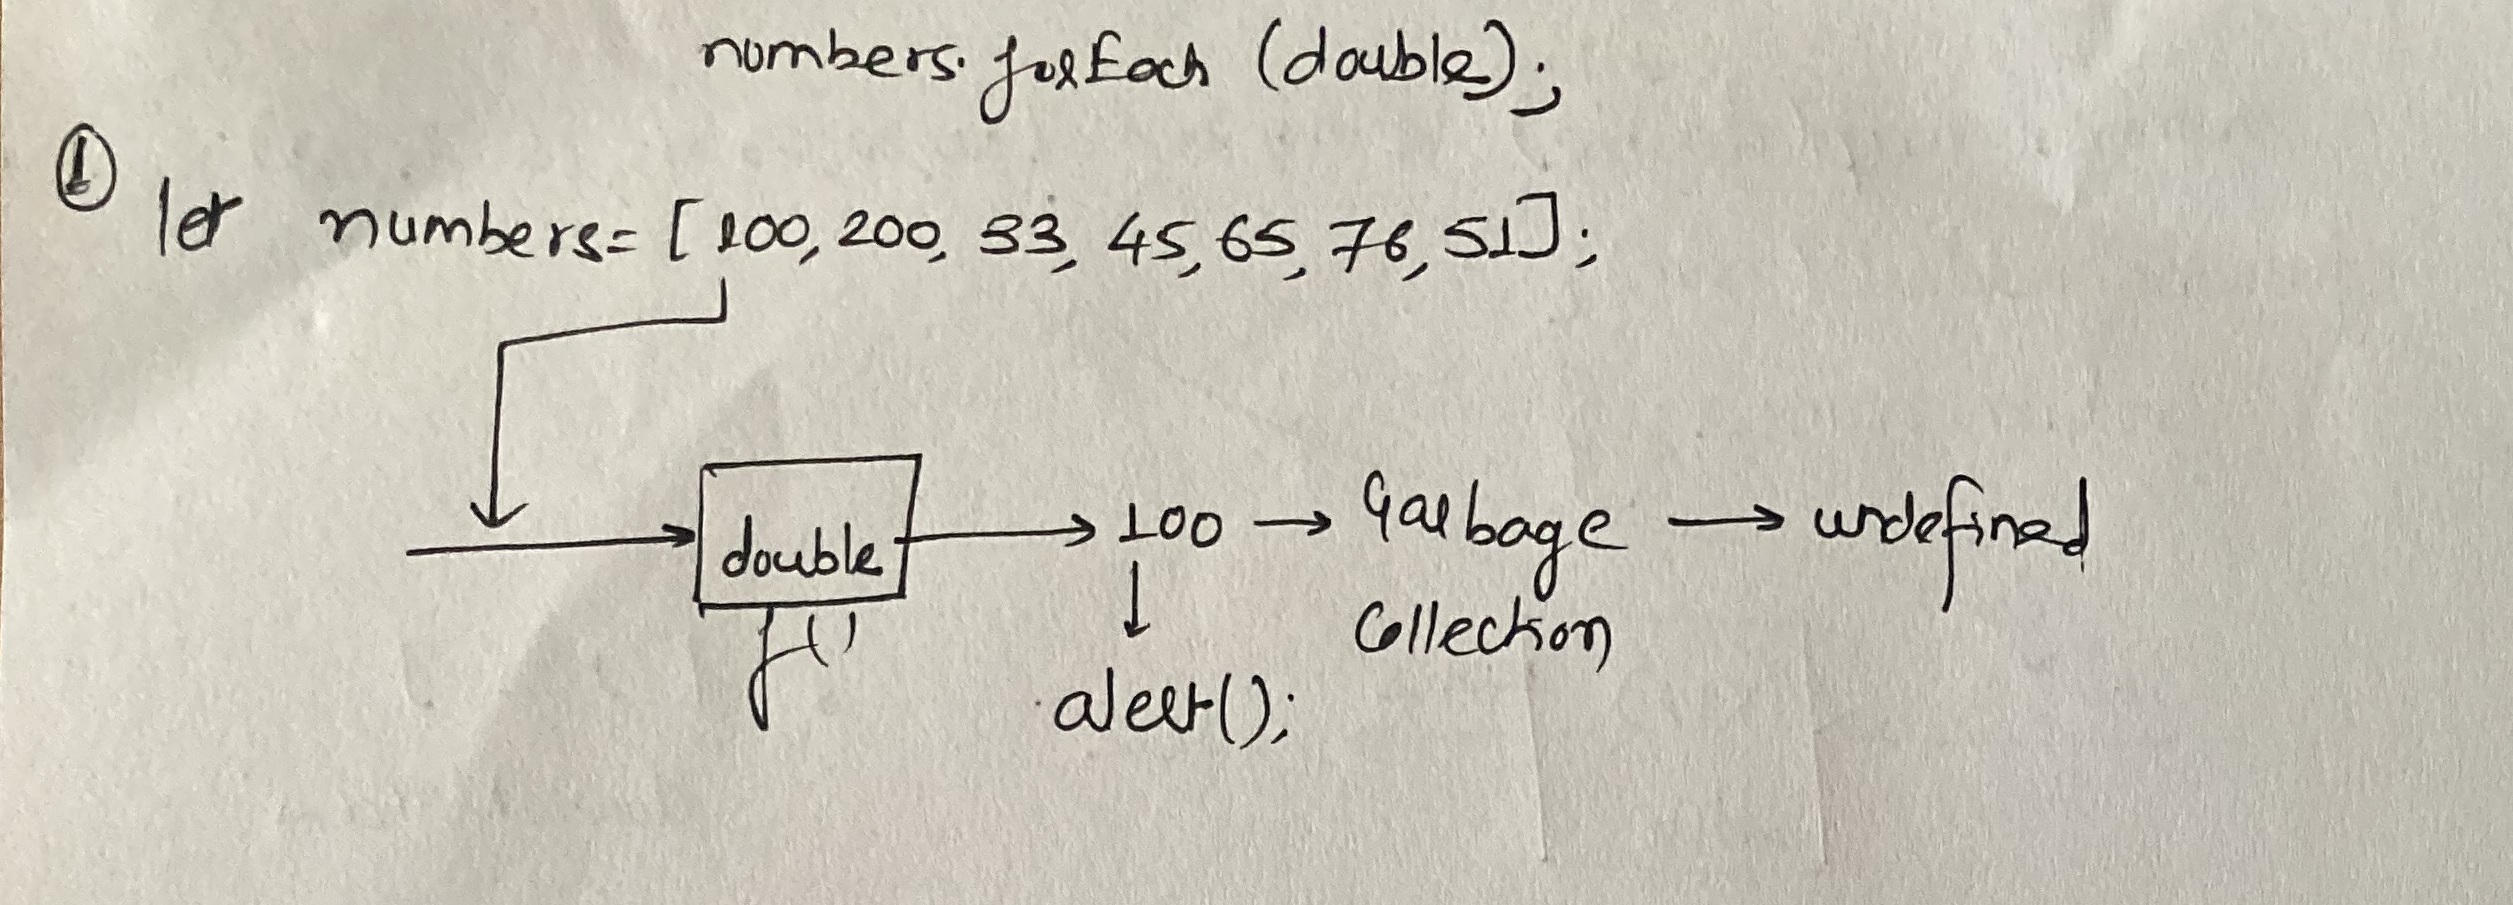 numbers.forEach (double);
①
let numbers= [100, 200, 33, 45, 65, 76, 51];
double
f()
100
Garbage
Collection
undefined
alert();